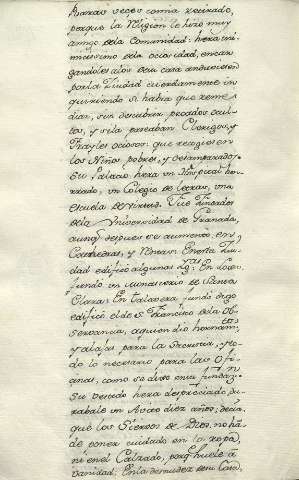 Raras veces comia retirado,
porque la Religion le hizo muy
amigo dela Comunidad: hera ini-
micissimo dela ociosidad, encar-
gandoles alos desu casa anduviesen
por la Ciudad cuerdamente in-
quiriendo si havia que reme-
diar, sin descubrir pecados ocul-
tos, y si la paseaban Clerigos, y
Frayles ociosos: que recogiesen
los Niños pobres, y desamparados:
Su Palacio hera un
rado, un Colegio de letras, una
escuela de virtud. Fue fundador
dela Universidad de Granada,
aunq despues se aumentò en
Cathedras, y Rentas. En esta Ciu-
dad edificò algunas En Loxa
fundò un Monasterio de Santa
Clara: En Talavera fundò digo
edificò el de S. Francisco dela Ob-
servancia, aquien diò hornam.tos
y alajas para la Sacristia, y to-
do lo necesario para las Ofi-
cinas, como se dixo en su fundaz.n
Su vestido hera despreciado, du-
rabale un Avito diez años; decia,
que los Siervos de Dios, no hà
de poner cuidado en la ropa,
ni en el Calzado, porq huele à
vanidad: En la desnudez de su Casa,